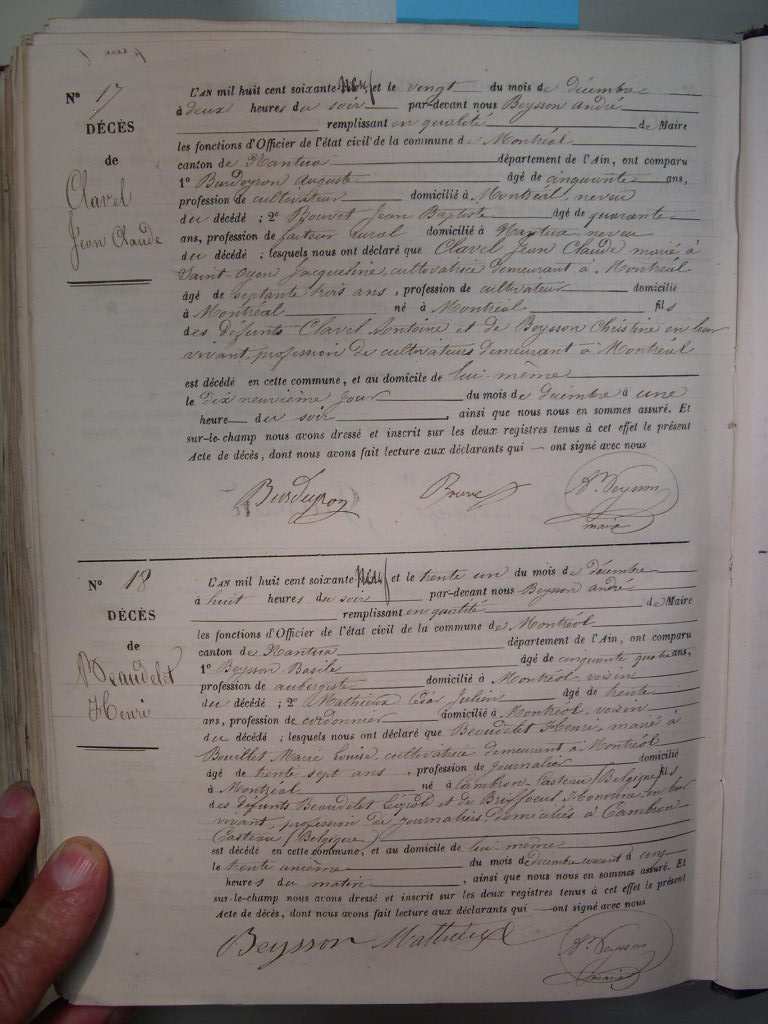 N° 17
DÉCÈS
de
Clavel
Jean Claude
L'AN mil huit cent soixante et le vingt du mois de décembre
à deux heures du soir par-devant nous Beysson André
remplissant en qualité de Maire
les fonctions d'Officier de l'état civil de la commune de Montréal
canton de Nantua département de l'Ain, ont comparu
1° Burdeyron Auguste âgé de cinquante ans,
profession de cultivateur domicilié à Montréal, neveu
du décédé ; 2° Bouvet Jean Baptiste âgé de quarante
ans, profession de facteur rural domicilié à Nantua neveu
du décédé ; lesquels nous ont déclaré que Clavel Jean Claude marié à
Saint Oyen Jacqueline, cultivatrice demeurant à Montréal
âgé de septante trois ans, profession de cultivateur domicilié
à Montréal né à Montréal fils
des défunts Clavel Antoine et de Beysson Christine en leur
vivant, profession de cultivateurs demeurant à Montréal
est décédé en cette commune, et au domicile de lui-même
le dix neuvième jour du mois de décembre à une
heure du soir, ainsi que nous nous en sommes assuré. Et
sur-le-champ nous avons dressé et inscrit sur les deux registres tenus à cet effet le présent
Acte de décès, dont nous avons fait lecture aux déclarants qui — ont signé avec nous
Beysson
maire
N° 18
DÉCÈS
de
Beaudelet
Henri
L'AN mil huit cent soixante et le trente un du mois de décembre
à huit heures du soir par-devant nous Beysson André
remplissant en qualité de Maire
les fonctions d'Officier de l'état civil de la commune de Montréal
canton de Nantua département de l'Ain, ont comparu
1° Beysson Basile âgé de cinquante quatre ans,
profession de aubergiste domicilié à Montréal voisin
du décédé ; 2° Mathieux César Julien âgé de trente
ans, profession de cordonnier domicilié à Montréal voisin
du décédé ; lesquels nous ont déclaré que Beaudelet Henri, marié à
Bouillet Marie Louise, cultivatrice demeurant à Montréal
âgé de trente sept ans, profession de journalier domicilié
à Montréal né à Cambron Casteau (Belgique) fils
des défunts Beaudelet et de Honorine en leur
vivant, profession de journaliers domiciliés à Cambron
Casteau (Belgique)
est décédé en cette commune, et au domicile de lui-même
le trente unième du mois de décembre courant à cinq
heures du matin, ainsi que nous nous en sommes assuré. Et
sur-le-champ nous avons dressé et inscrit sur les deux registres tenus à cet effet le présent
Acte de décès, dont nous avons fait lecture aux déclarants qui — ont signé avec nous
Beysson Mathieux Beysson
maire